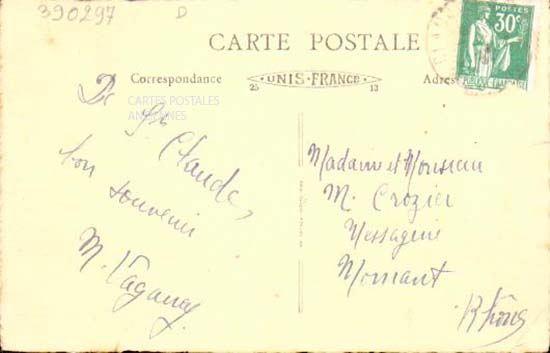 390297
D
CARTE POSTALE
POSTES
30c
Correspondance
UNIS-FRANCE
25
13
Adres
CARTES POSTALES
ANCIENNES
De St Claude,
bon souvenir
M. Vaganay
Madame et Monsieur
M. Crozier
Messagerie
Mornant
Rhône